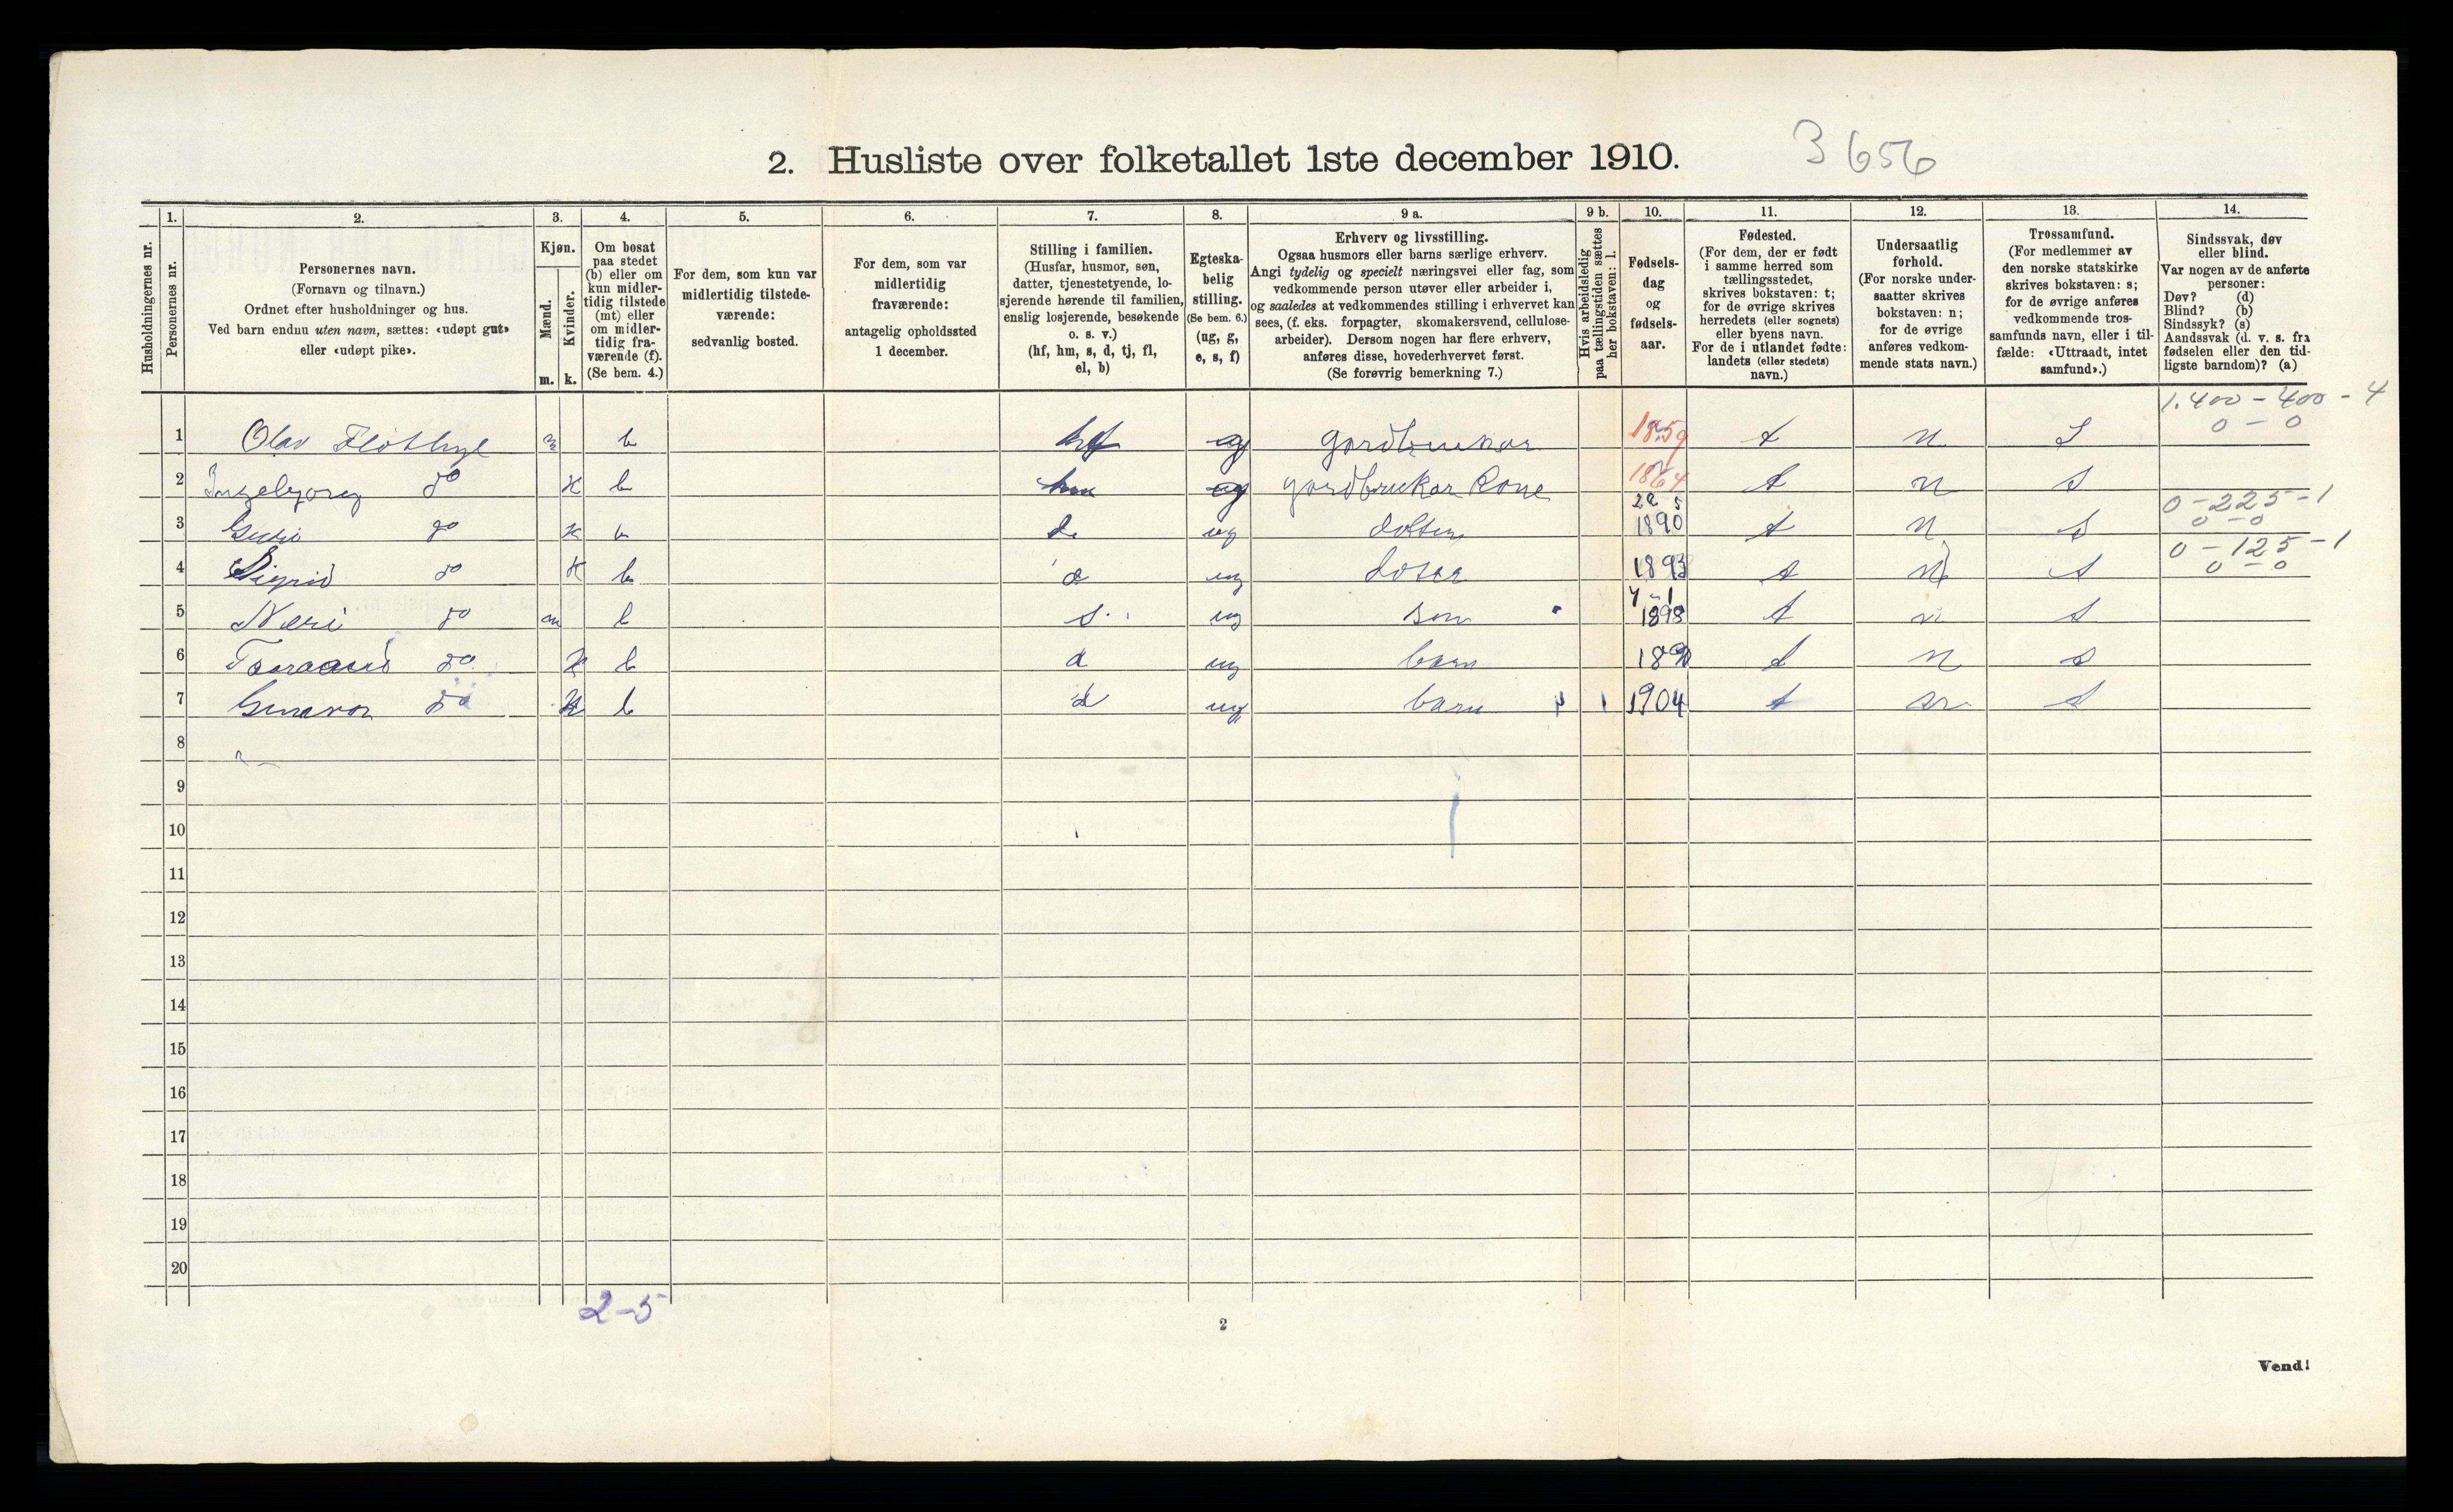 2. Husliste over folketallet 1ste december 1910.
3 656
Husholdningernes nr.
1.
Personernes nr.
2.
Personernes navn.
(Fornavn og tilnavn.)
Ordnet efter husholdninger og hus.
Ved barn endnu uten navn, sættes: «udøpt gut»
eller «udøpt pike».
3.
Kjøn.
Mænd.
Kvinder.
m. k.
4.
Om bosat
paa stedet
(b) eller om
kun midler-
tidig tilstede
(mt) eller
om midler-
tidig fra-
værende (f).
(Se bem. 4.)
5.
For dem, som kun var
midlertidig tilstede-
værende:
sedvanlig bosted.
6.
For dem, som var
midlertidig
fraværende:
antagelig opholdssted
1 december.
7.
Stilling i familien.
(Husfar, husmor, søn,
datter, tjenestetyende, lo-
sjerende hørende til familien,
enslig losjerende, besøkende
o. s. v.)
(hf, hm, s, d, tj, fl,
el, b)
8.
Egteska-
belig
stilling.
(Se bem. 6.)
(ug, g,
e, s, f)
9 a.
Erhverv og livsstilling.
Ogsaa husmors eller barns særlige erhverv.
Angi tydelig og specielt næringsvei eller fag, som
vedkommende person utøver eller arbeider i,
og saaledes at vedkommendes stilling i erhvervet kan
sees, (f. eks. forpagter, skomakersvend, cellulose-
arbeider). Dersom nogen har flere erhverv,
anføres disse, hovederhvervet først.
(Se forøvrig bemerkning 7.)
9 b.
Hvis arbeidsledig
paa tællingstiden sættes
her bokstaven: l.
10.
Fødsels-
dag
og
fødsels-
aar.
11.
Fødested.
(For dem, der er født
i samme herred som
tællingsstedet,
skrives bokstaven: t;
for de øvrige skrives
herredets (eller sognets)
eller byens navn.
For de i utlandet fødte:
landets (eller stedets)
navn.)
12.
Undersaatlig
forhold.
(For norske under-
saatter skrives
bokstaven: n;
for de øvrige
anføres vedkom-
mende stats navn.)
13.
Trossamfund.
(For medlemmer av
den norske statskirke
skrives bokstaven: s;
for de øvrige anføres
vedkommende tros-
samfunds navn, eller i til-
fælde: «Uttraadt, intet
samfund».)
14.
Sindssvak, døv
eller blind.
Var nogen av de anførte
personer:
Døv? (d)
Blind? (b)
Sindssyk? (s)
Aandssvak (d. v. s. fra
fødselen eller den tid-
ligste barndom)? (a)
1.400 - 400 - 4
0 - 0
1 Olav m b hf g gardbrukar 1859 t n s
2 Ingebjorg do k b hm g gardbrukar Kone 1864 t n s
22 5
0-225-1
0-0
3 do k b d ug 1890 t n s
0-125-1
0-0
4 Sigrid do k b d ug 1893 t n s
5 do m b s ug son 1898 t n s
6 do k b d ug barn t n s
7 do k b d ug barn 1904 t n s
8
9
10
11
12
13
14
15
16
17
18
19
20
2-5
2
Vend!